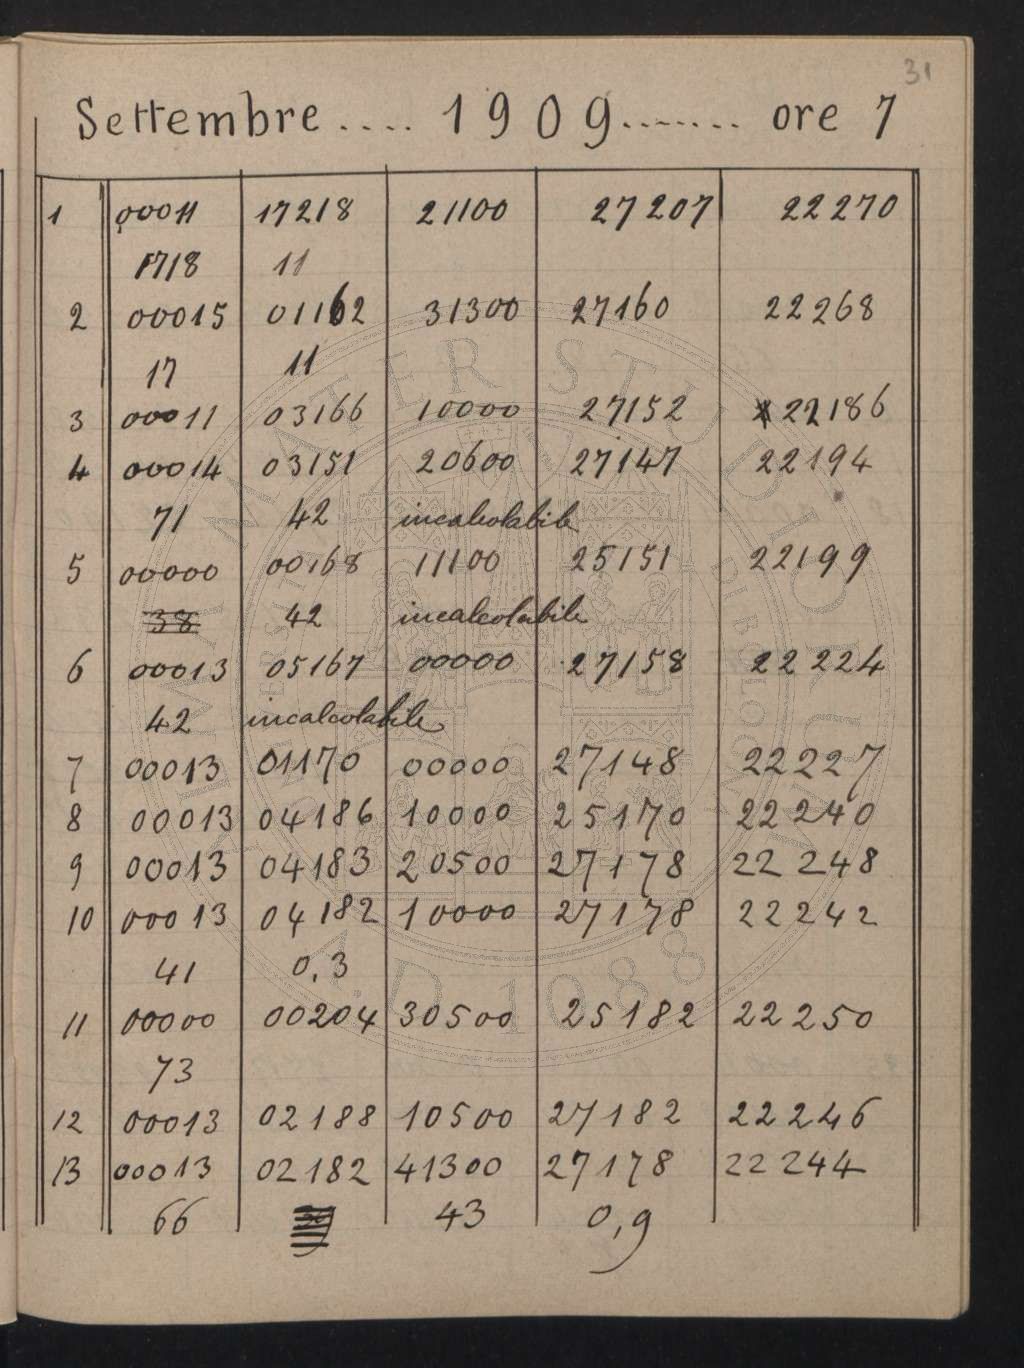 31
Settembre .... 1909 ....... ore 7
1 00011 17218 21100 27207 22270
1718 11
2 00015 01162 31300 27160 22268
17 11
3 00011 03166 10000 27152 22186
4 00014 03151 20600 27147 22194
71 42 incalcolabile
5 00000 00168 11100 25151 22199
38 42 incalcolabile
6 00013 05167 00000 27158 22224
42 incalcolabile
7 00013 01170 00000 27148 22227
8 00013 04186 10000 25170 22240
9 00013 04183 20500 27178 22248
10 00013 04182 10000 27178 22242
41 0,3
11 00000 00204 30500 25182 22250
73
12 00013 02188 10500 27182 22246
13 00013 02182 41300 27178 22244
66 43 0,9
ALMA MATER STUDIORUM
A.D. 1088